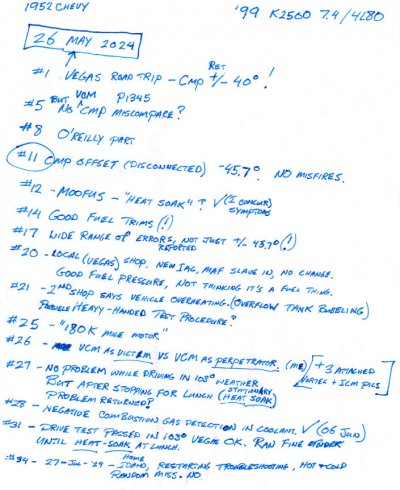 1952 CHEVY '99 K2500 7.4/4L80
26 MAY 2024
#1 VEGAS ROAD TRIP - CMP RET +/- 40° !
#5 BUT VCM P1345
NO CMP MISCOMPARE?
#8 O'REILLY PART
#11 CMP OFFSET (DISCONNECTED) -45.7° NO MISFIRES.
#12 - MOOFUS - "HEAT SOAK"? √ (I CONCUR)
SYMPTOMS
#14 GOOD FUEL TRIMS (!)
#17 WIDE RANGE OF ERRORS, NOT JUST +/- 45.7° (!)
REPORTED
#20 - LOCAL (VEGAS) SHOP. NEW IAC, MAF SLAVE IN, NO CHANGE.
GOOD FUEL PRESSURE, NOT THINKING IT'S A FUEL THING.
#21 - 2ND SHOP SAYS VEHICLE OVERHEATING. (OVERFLOW TANK BUBBLING)
POSSIBLE HEAVY-HANDED TEST PROCEDURE?
#25 - "180K MILE MOTOR"
#26 - VCM AS VICTIM VS VCM AS PERPETRATOR. (ME) [+3 ATTACHED
VORTEC + ICM PICS]
#27 - NO PROBLEM WHILE DRIVING IN 103° WEATHER
BUT AFTER STOPPING FOR LUNCH (STATIONARY HEAT SOAK)
PROBLEM RETURNED?
#28 - NEGATIVE COMBUSTION GAS DETECTION IN COOLANT. √ (06 JUN)
#31 - DRIVE TEST PASSED IN 103° VEGAS OK. RAN FINE
UNTIL HEAT-SOAK AT LUNCH.
#34 - 27-JUL-'24 - HOME IDAHO, RESTARTING TROUBLESHOOTING. HOT + COLD
RANDOM MISS. NO